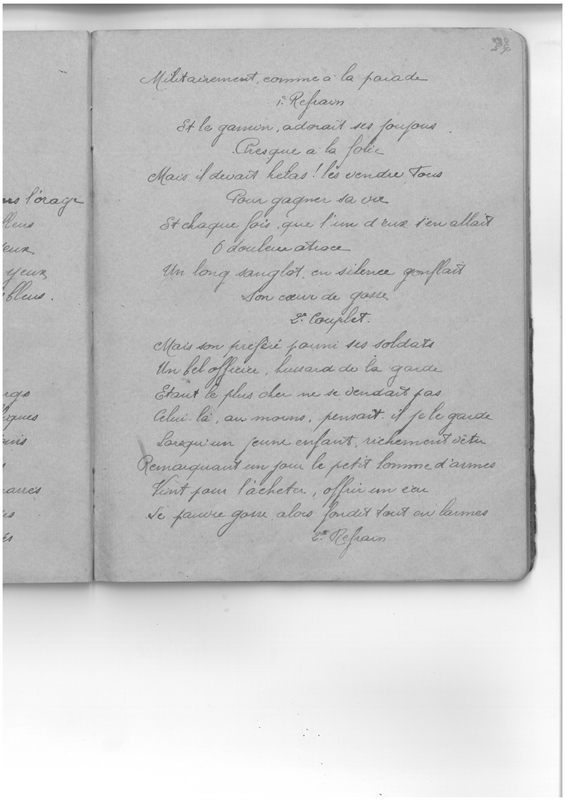 ns l'orage
yeux
bleus.
Militairement, comme à la parade
1r Refrain
Et le gamin, adorait ses joujous.
Presque à la folie
Mais il devait hélas! les vendre tous
Pour gagner sa vie
Et chaque fois, que l'un d'eux s'en allait
O douleur atroce
Un long sanglot, en silence gonflait
Son cœur de gosse
2e Couplet.
Mais son préféré parmi ses soldats
Un bel officier, hussard de la garde
Etant le plus cher ne se vendait pas
Celui-là, au moins, pensait-il je le garde
Lorsqu'un jeune enfant, richement vêtu
Remarquant un jour le petit homme d'armes
Vint pour l'acheter, offrir un écu
Le pauvre gosse alors fondit tout en larmes
2e Refrain